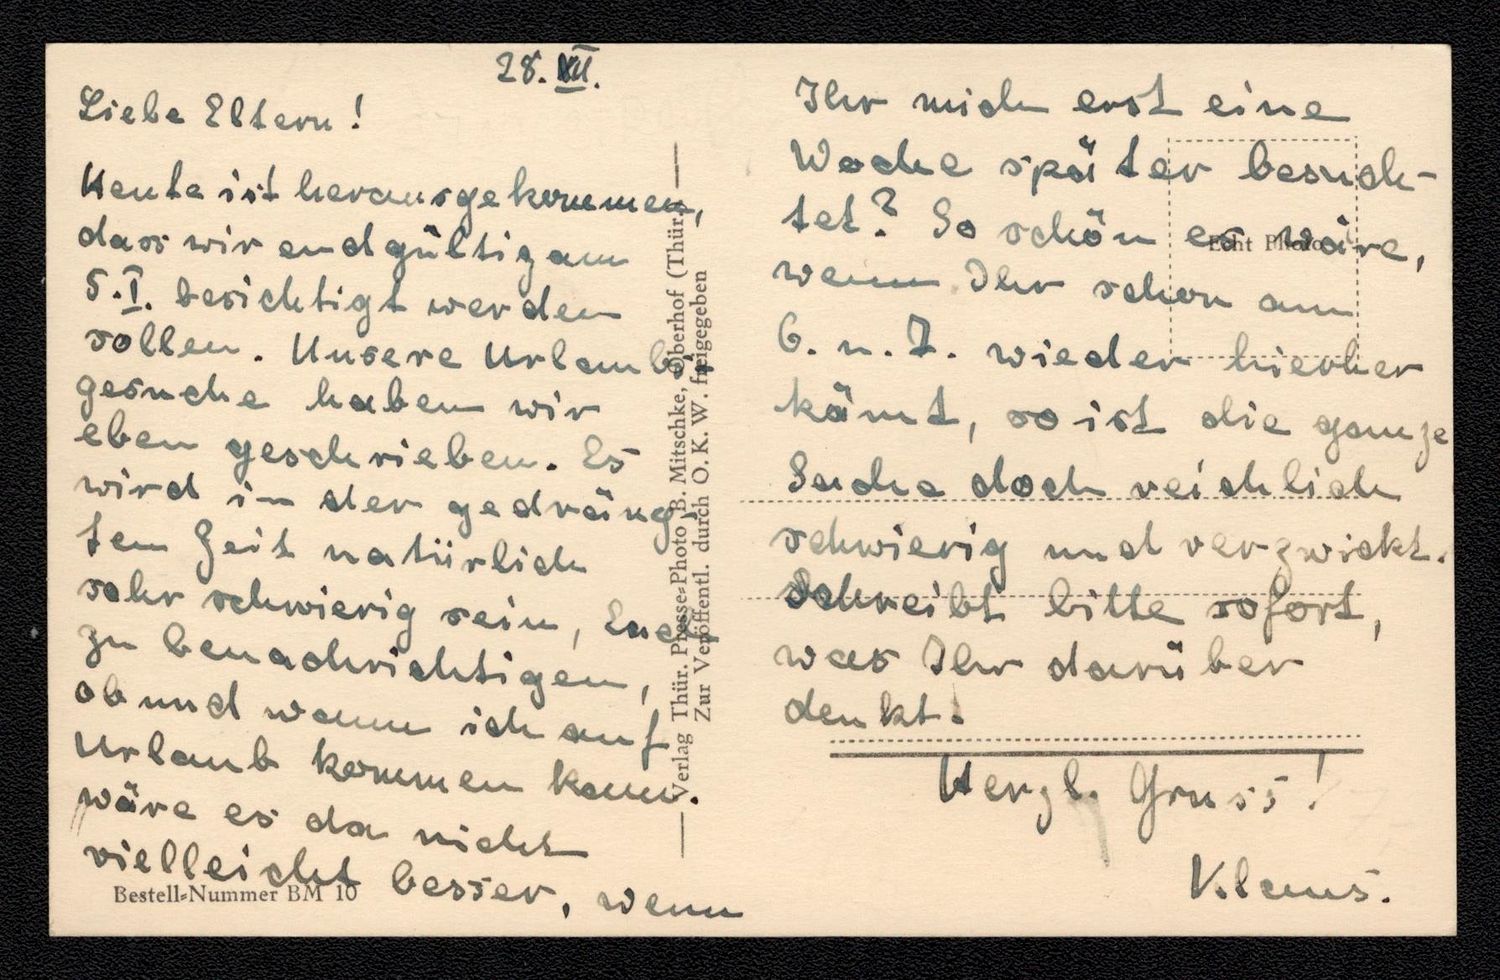 28. XII.
Liebe Eltern!
Heute ist herausgekommen,
dass wir endgültig am
5. I. besichtigt werden
sollen. Unsere Urlaubs-
gesuche haben wir
eben geschrieben. Es
wird in der gedräng-
ten Zeit natürlich
sehr schwierig sein, Euch
zu benachrichtigen,
ob und wann ich auf
Urlaub kommen kann.
wäre es da nicht
vielleicht besser, wenn
Bestell-Nummer BM 10
Verlag Thür. Presse-Photo B. Mitschke, Oberhof (Thür.)
Zur Veröffentl. durch O. K. W. freigegeben
Ihr mich erst eine
Woche später besuch-
tet? So schön es wäre,
Echt Photo
wenn Ihr schon am
6. u. 7. wieder hierher
kämt, so ist die ganze
Sache doch reichlich
schwierig und verzwickt.
Schreibt bitte sofort,
was Ihr darüber
denkt.
Herzl. Gruss!
Klaus.